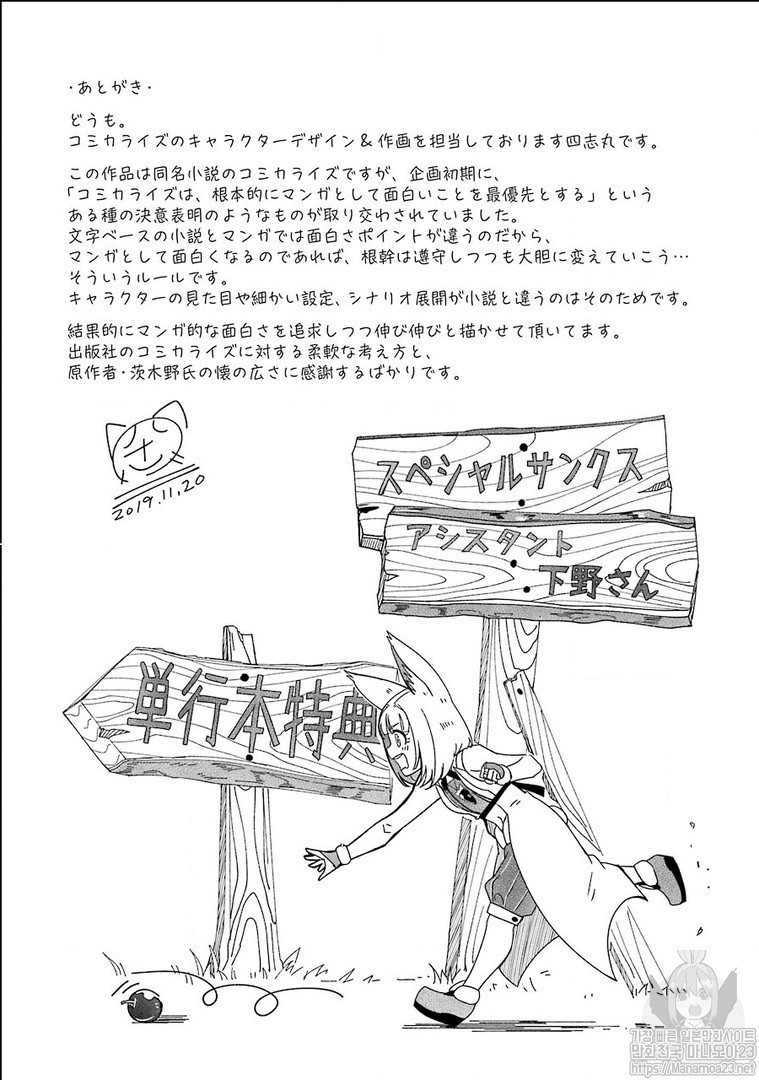 ・あとがき・
どうも。
コミカライズのキャラクターデザイン＆作画を担当しております四志丸です。
この作品は同名小説のコミカライズですが、企画初期に、
「コミカライズは、根本的にマンガとして面白いことを最優先とする」という
ある種の決意表明のようなものが取り交わされていました。
文字ベースの小説とマンガでは面白さポイントが違うのだから、
マンガとして面白くなるのであれば、根幹は遵守しつつも大胆に変えていこう…
そういうルールです。
キャラクターの見た目や細かい設定、シナリオ展開が小説と違うのはそのためです。
結果的にマンガ的な面白さを追求しつつ伸び伸びと描かせて頂いてます。
出版社のコミカライズに対する柔軟な考え方と、
原作者・茨木野氏の懐の広さに感謝するばかりです。
2019.11.20
スペシャルサンクス
アシスタント
下野さん
単行本特典
가장 빠른 일본만화사이트
만화천국 마나모아23
https://Manamoa23.net